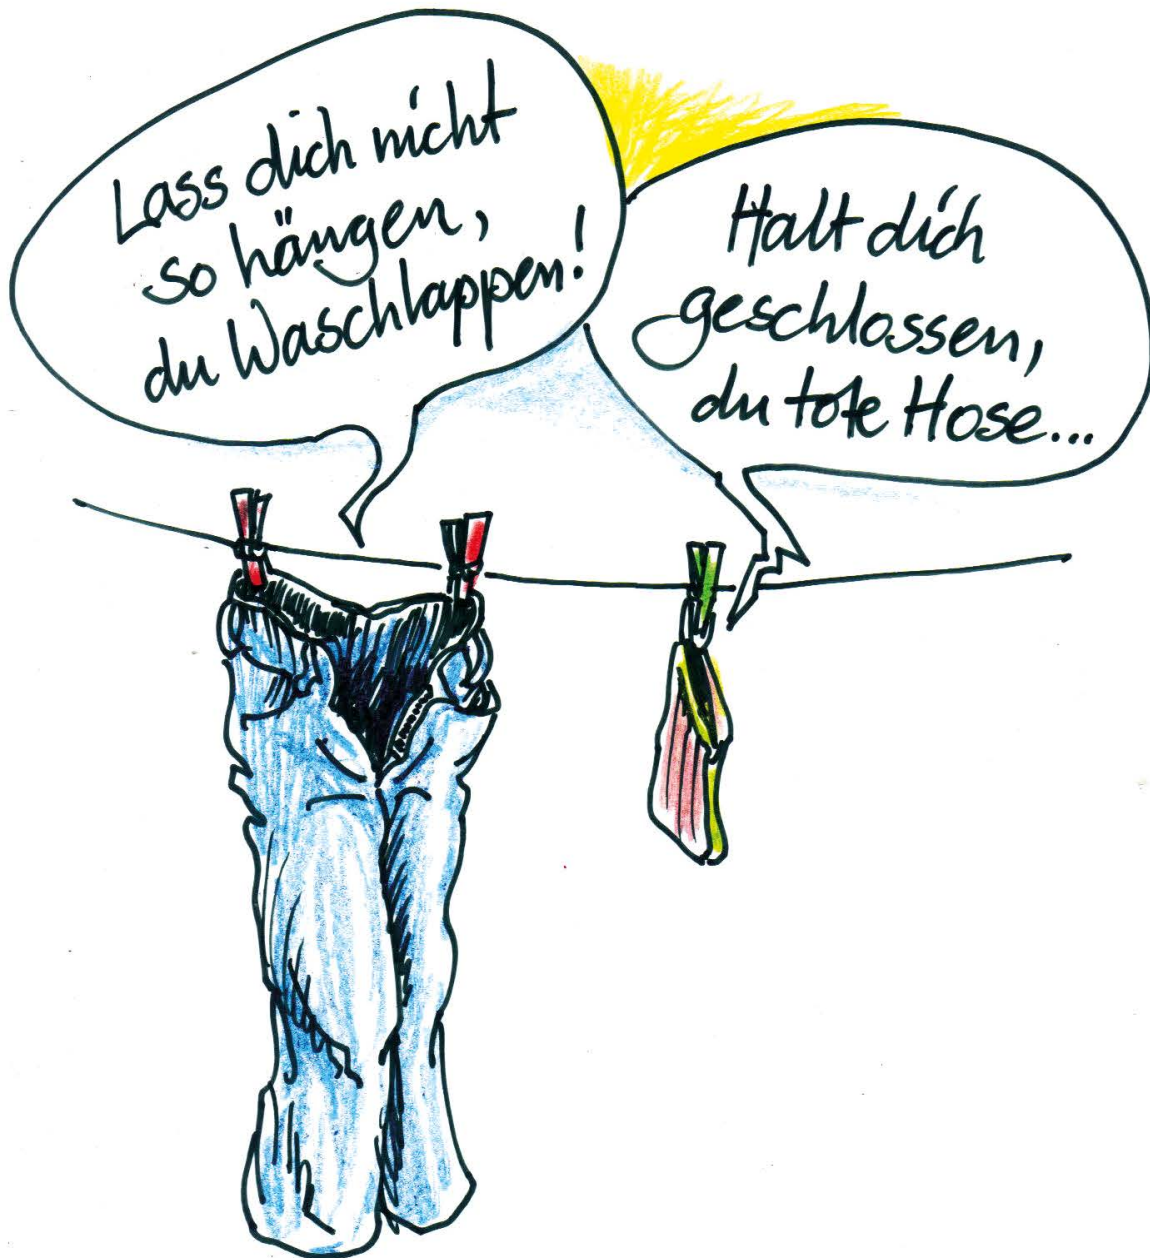 Lass dich nicht
so hängen,
du Waschlappen!
Halt dich
geschlossen,
du tote Hose...